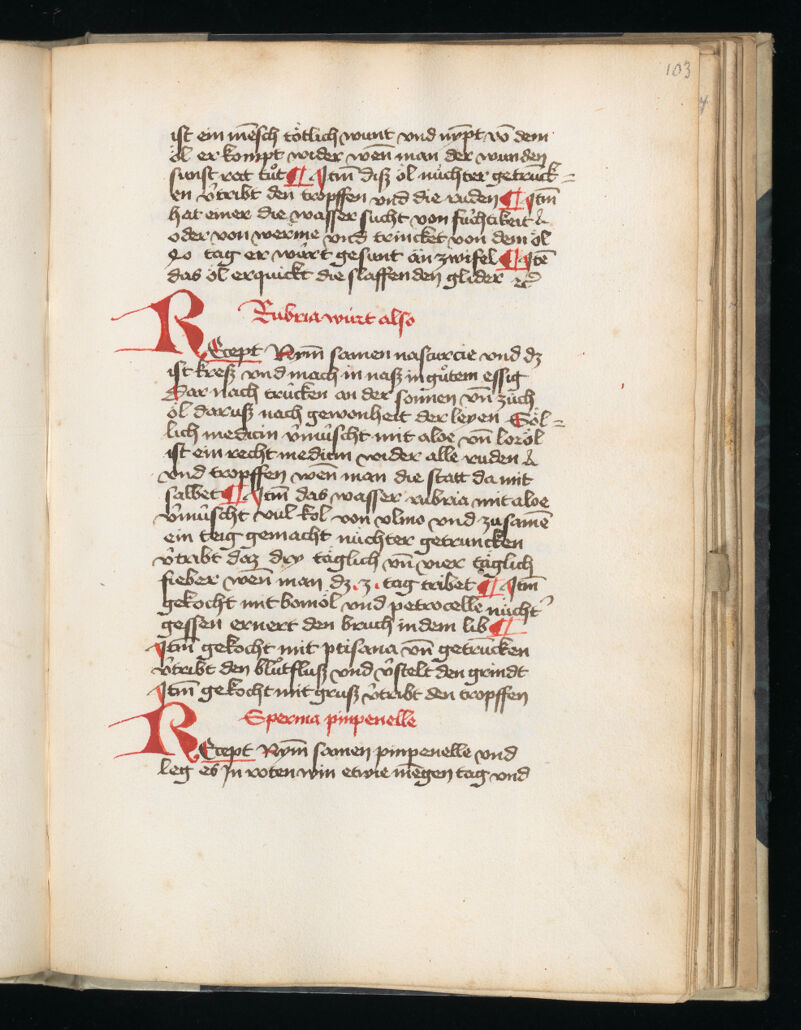 103
ist ein mēsch tötlich wunt vnd nypt vō dem
öl er kompt wider wen̄ man der wunden
sunst rat tůt ¶ Itm̄ disz öl nüchter getruck=
en v̾tribt den tropffen vnd die ruden ¶ Itm̄
hat einer die wasser sucht von füchtikeit
oder von werme vnd trincket von dem öl
40 tag er würt gesunt an zwifel ¶ Itē
das öl erquickt die slaffenden glider
Rubria würt also
REcept Nym̄ somen nasturcie vnd dz
ist kresz vnd mach in nasz in gůtem essig
Dar nach trücken an der sonnen vn̄ züch
öl darusz nach gewonheit der leyen Söl=
lich medicin v̾müscht mit aloe vn̄ loröl
ist ein recht medicin wider alle ruden
vnd tropffen wen̄ man die statt da mit
salbet ¶ Itm̄ das wasser rubria mit aloe
v̾müscht vnd kol von vlmo vnd zusamē
ein teig gemacht nüchter getruncken
v̾tribt daz dry täglich vn̄ vier täglich
fieber wen̄ man dz .3. tag tribet ¶ Itm̄
gekocht mit bomöl vnd petrocelle nücht̾
gessen ernert den bruch in dem lib ¶
Itm̄ gekocht mit ptisana vn̄ getruncken
v̾tribt den blůtflusz vnd v̾stelt den grindt
Itm̄ gekocht mit grusz v̾tribt den tropffen
Sperma pinpenelle
REcept Nym̄ somen pinpenelle vnd
leg es in roten win etwie mēgen tag vnd